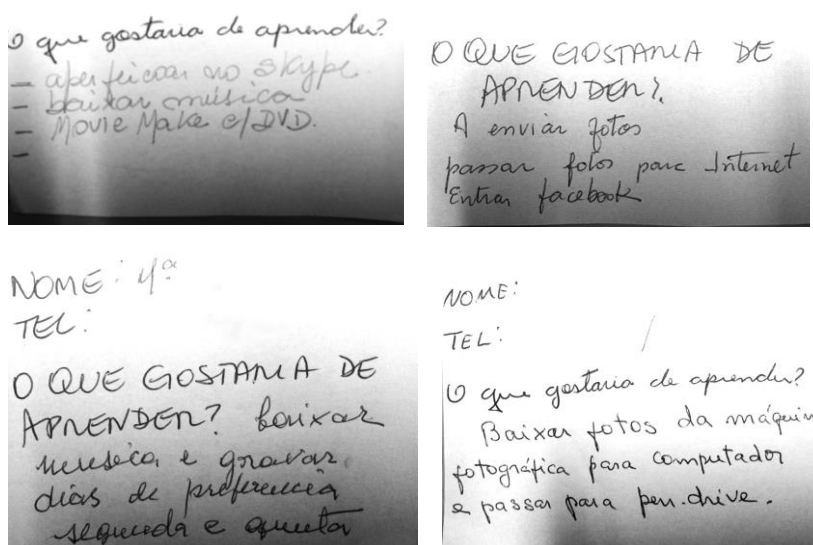 O que gostaria de aprender?
- aperfeicoar no Skype.
- baixar música
- Movie Make c/DVD.
-
O QUE GOSTARIA DE
APRENDER?
A enviar fotos
passar fotos para Internet
Entrar facebook
NOME: 4ª
TEL:
O QUE GOSTARIA DE
APRENDER? baixar
museca, e gravar.
dias de preferencia
segunda e quinta
NOME:
TEL:
O que gostaria de aprender?
Baixar fotos da máquin
fotográfica para computador
e passar para pen-drive.